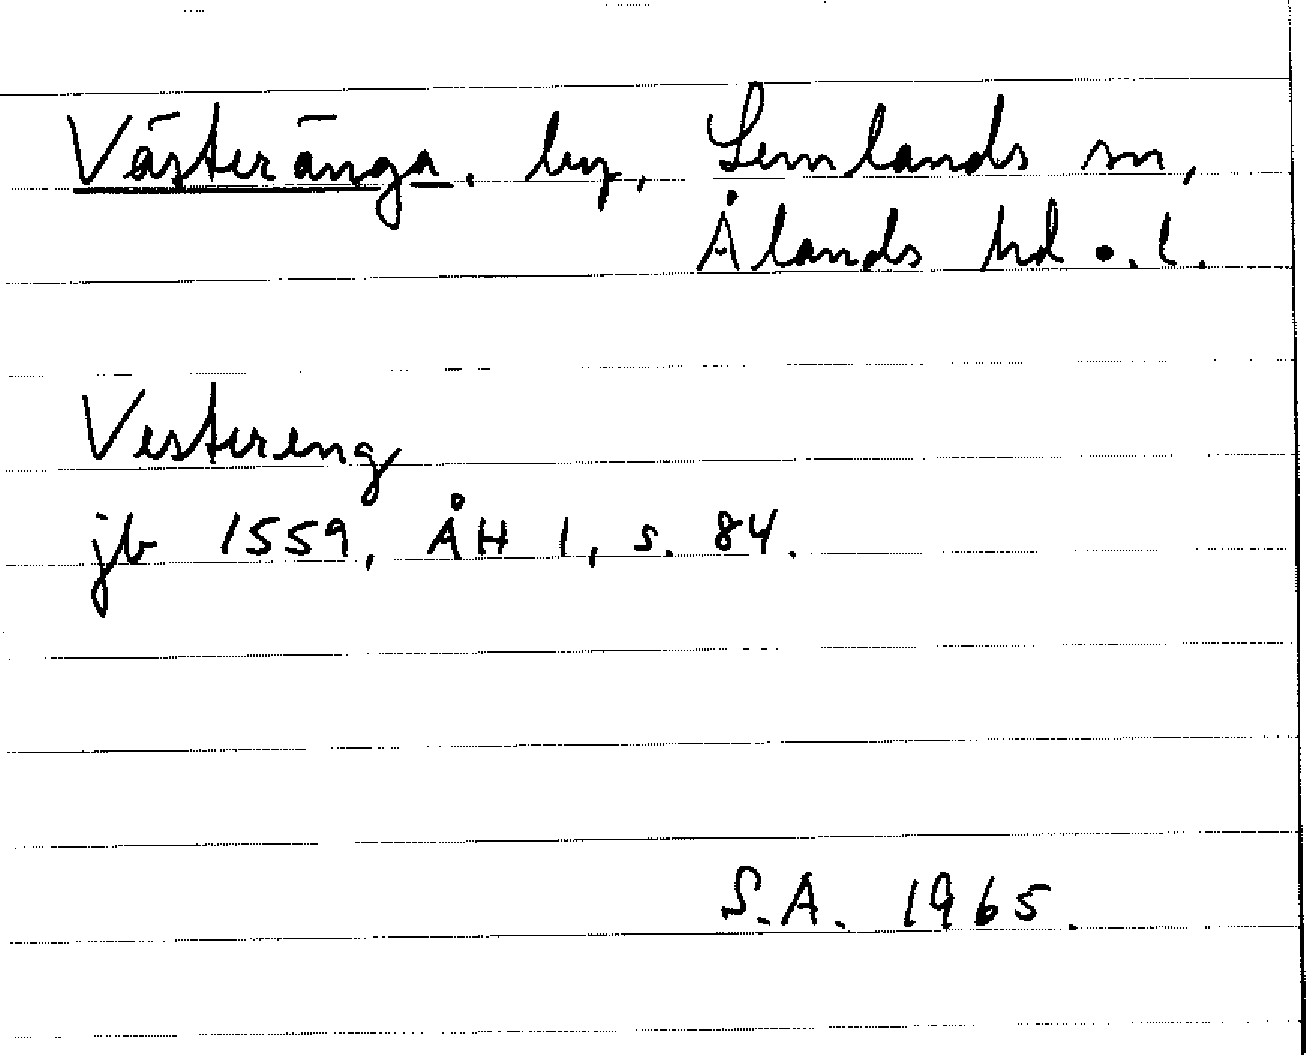 Västeränga, by, Lemlands sn,
Ålands hd o. l.
Vestereng
jb 1559, ÅH 1, s. 84.
S.A. 1965.